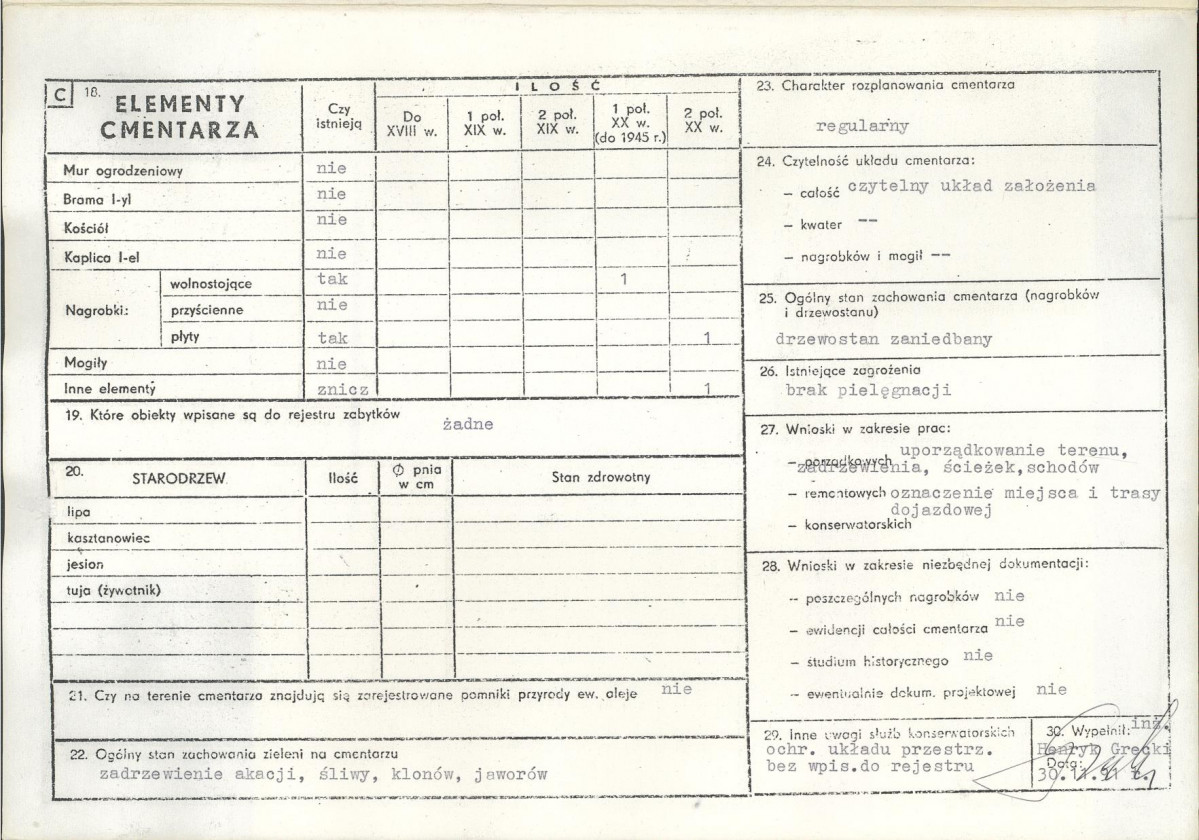 C 18. ELEMENTY CMENTARZA
Czy istnieją
ILOŚĆ
Do XVIII w.
1 poł. XIX w.
2 poł. XIX w.
1 poł. XX w. (do 1945 r.)
2 poł. XX w.
Mur ogrodzeniowy nie
Brama I-yl nie
Kościół nie
Kaplica I-el nie
Nagrobki:
wolnostojące tak 1
przyścienne nie
płyty tak 1
Mogiły nie
Inne elementy znicz 1
19. Które obiekty wpisane są do rejestru zabytków
żadne
20. STARODRZEW
Ilość
Ø pnia w cm
Stan zdrowotny
lipa
kasztanowiec
jesion
tuja (żywotnik)
21. Czy na terenie cmentarza znajdują się zarejestrowane pomniki przyrody ew. aleje nie
22. Ogólny stan zachowania zieleni na cmentarzu
zadrzewienie akacji, śliwy, klonów, jaworów
23. Charakter rozplanowania cmentarza
regularny
24. Czytelność układu cmentarza:
— całość czytelny układ założenia
— kwater --
— nagrobków i mogił --
25. Ogólny stan zachowania cmentarza (nagrobków
i drzewostanu)
drzewostan zaniedbany
26. Istniejące zagrożenia
brak pielęgnacji
27. Wnioski w zakresie prac:
— porządkowych uporządkowanie terenu,
zadrzewienia, ścieżek,schodów
— remontowych oznaczenie miejsca i trasy
dojazdowej
— konserwatorskich
28. Wnioski w zakresie niezbędnej dokumentacji:
— poszczególnych nagrobków nie
— ewidencji całości cmentarza nie
— studium historycznego nie
— ewentualnie dokum. projektowej nie
29. Inne uwagi służb konserwatorskich
ochr. układu przestrz.
bez wpis.do rejestru
30. Wypełnił: inż.
Henryk Grecki
Data:
30.11.91 r.